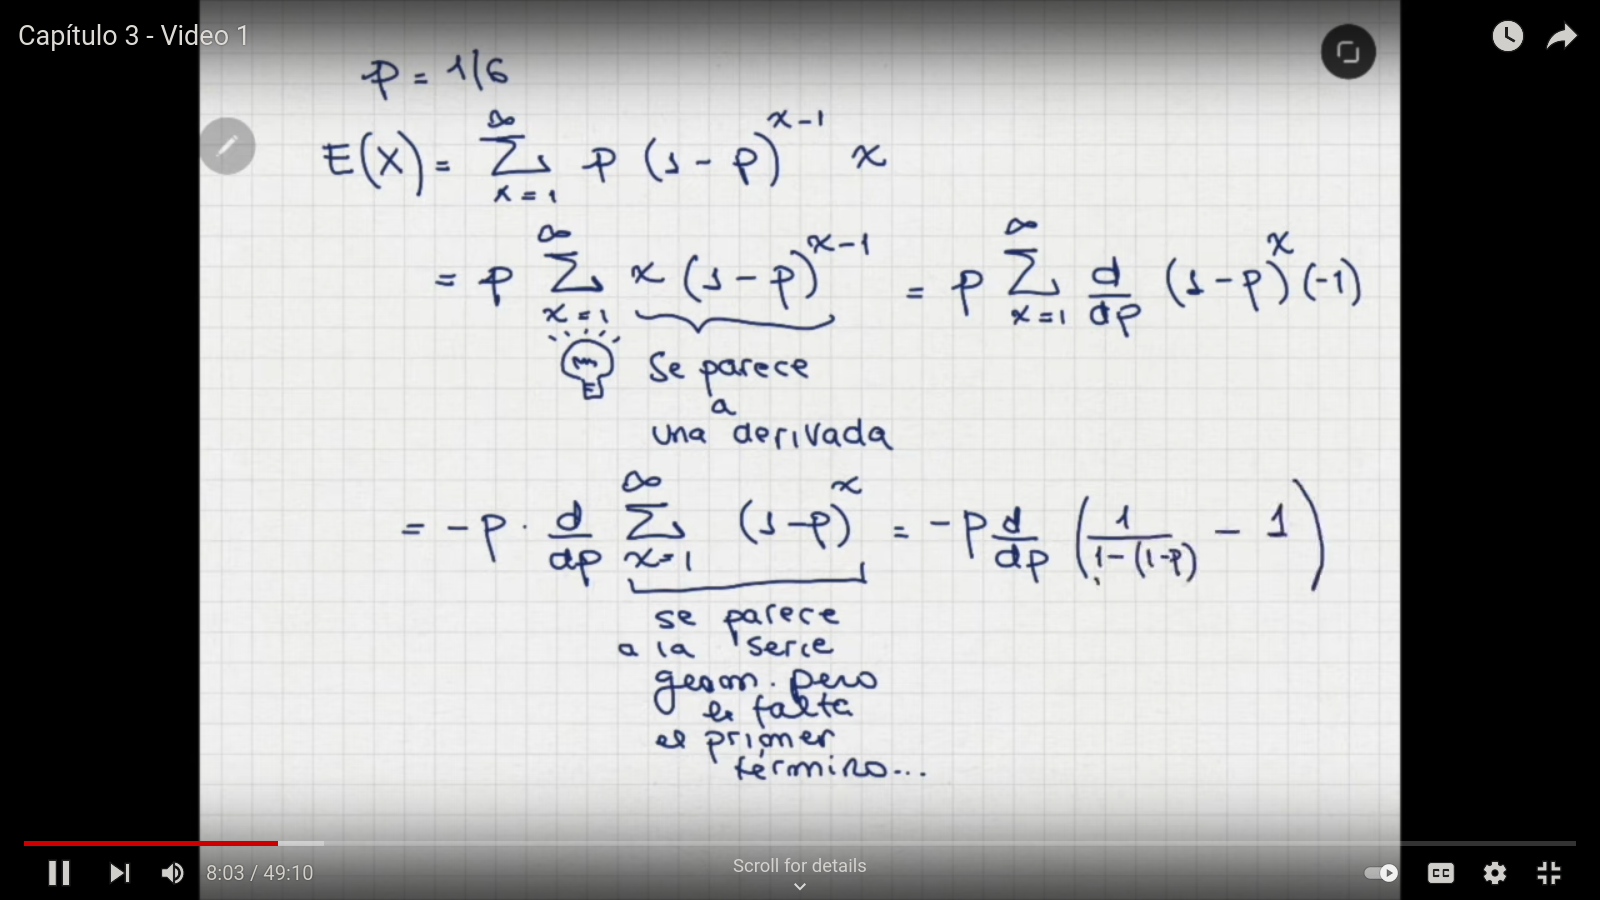 Capítulo 3 - Video 1
p = 1/6
E(X) = ∑_{x=1}^{∞} p (1-p)^{x-1} x
= p ∑_{x=1}^{∞} x (1-p)^{x-1} = p ∑_{x=1}^{∞} d/dp (1-p)^{x} (-1)
Se parece
a
una derivada
= -p · d/dp ∑_{x=1}^{∞} (1-p)^{x} = -p d/dp (1/(1-(1-p)) - 1)
se parece
a la serie
geom. pero
le falta
el primer
término...
8:03 / 49:10
Scroll for details
CC